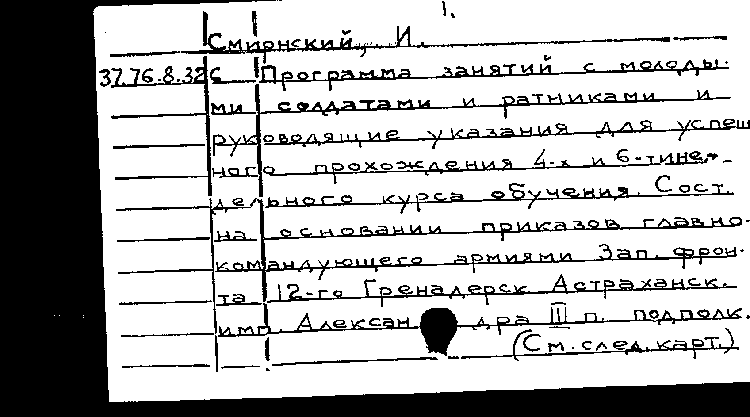 1.
Смирнский, И.
37.76.8.32с Программа занятий с молоды-
ми солдатами и ратниками и
руководящие указания для успеш
ного прохождения 4-х и 6-тине-
дельного курса обучения. Сост.
на основании приказов главно-
командующего армиями Зап. фрон-
та 12-го Гренадерск Астраханск.
имп. Александра III п. подполк.
(См. след. карт.)